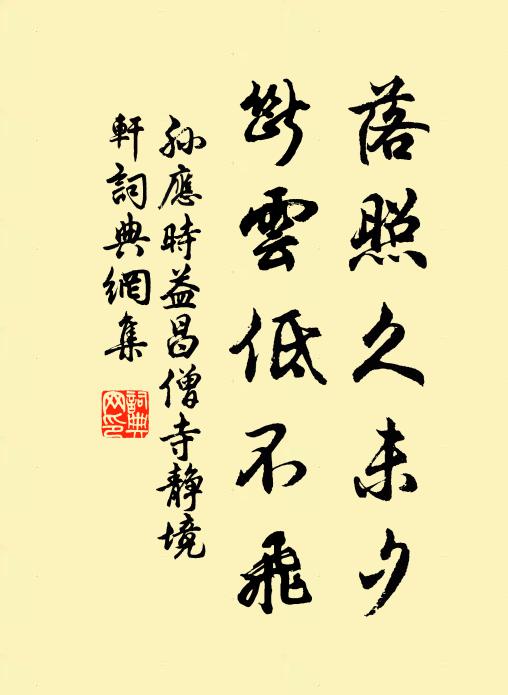 落照久未夕
断雲低不飛
孫應時益昌僧寺靜境
軒詞典網集
詞典
网印